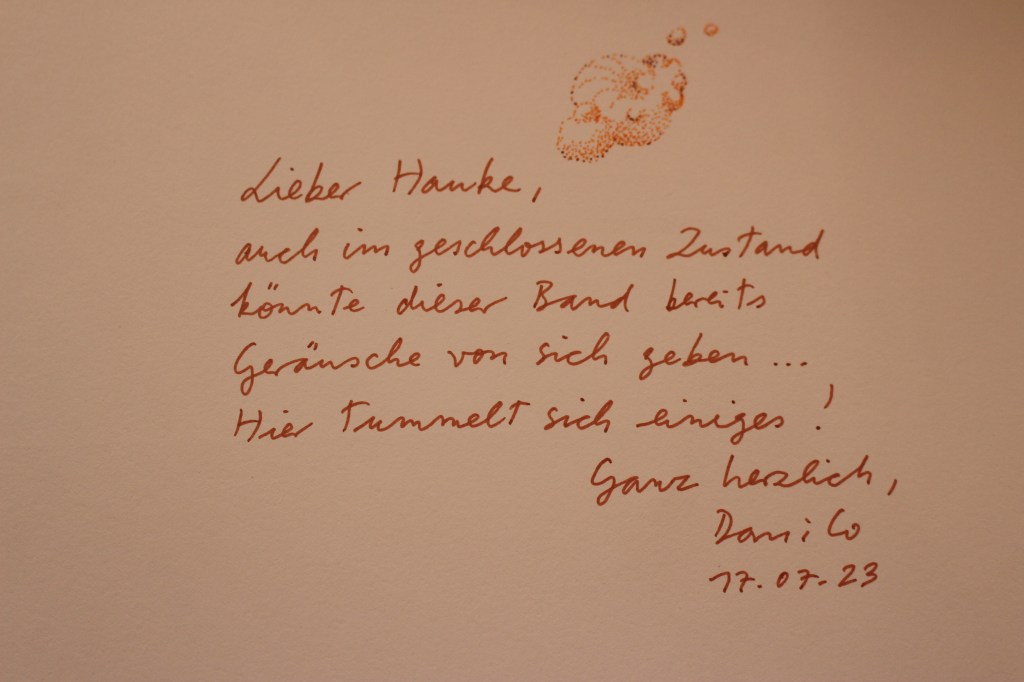 Lieber Hauke,
auch im geschlossenen Zustand
könnte dieser Band bereits
Geräusche von sich geben ...
Hier tummelt sich einiges!
Ganz herzlich,
Danilo
17.07.23